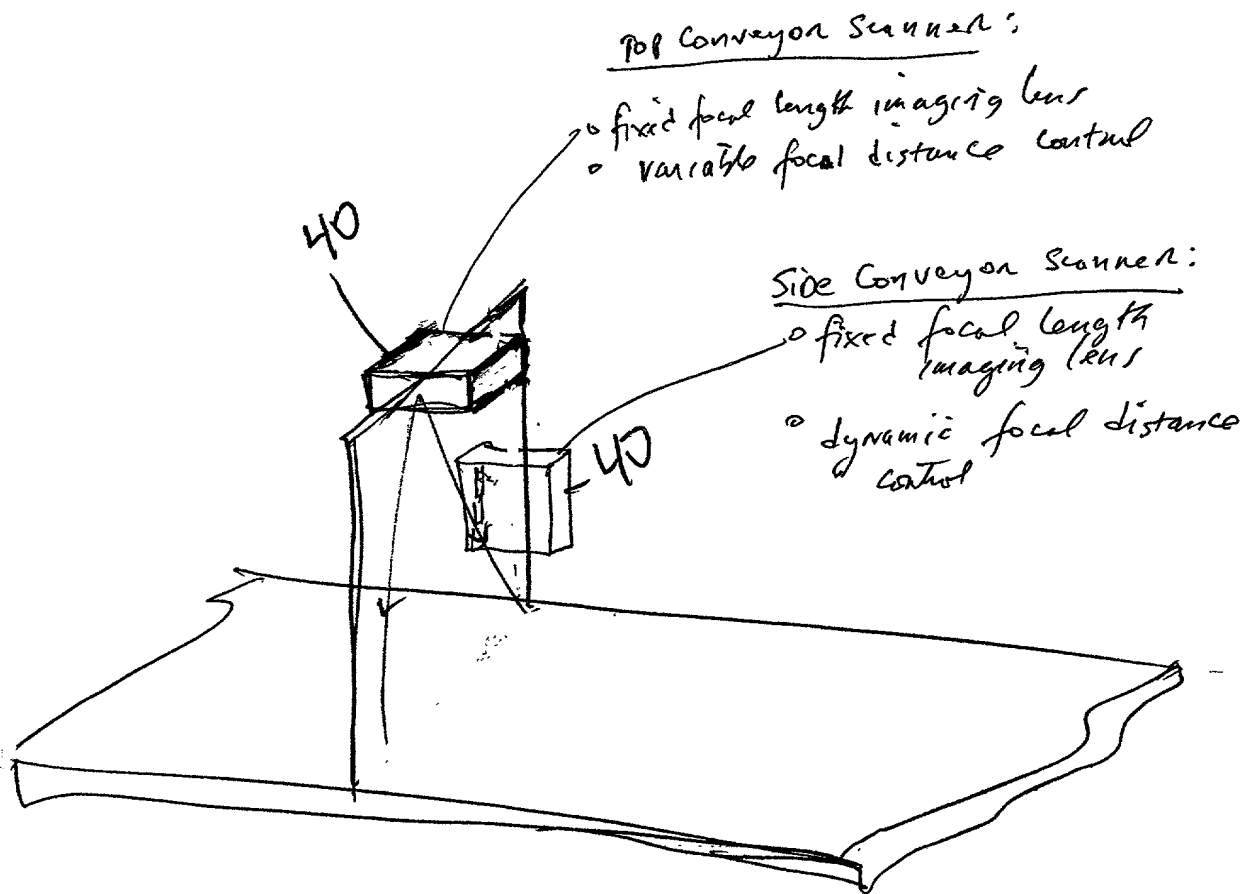 Top Conveyor Scanner:
• fixed focal length imaging lens
• variable focal distance control
40
Side Conveyor Scanner:
• fixed focal length
imaging lens
40
• dynamic focal distance
control